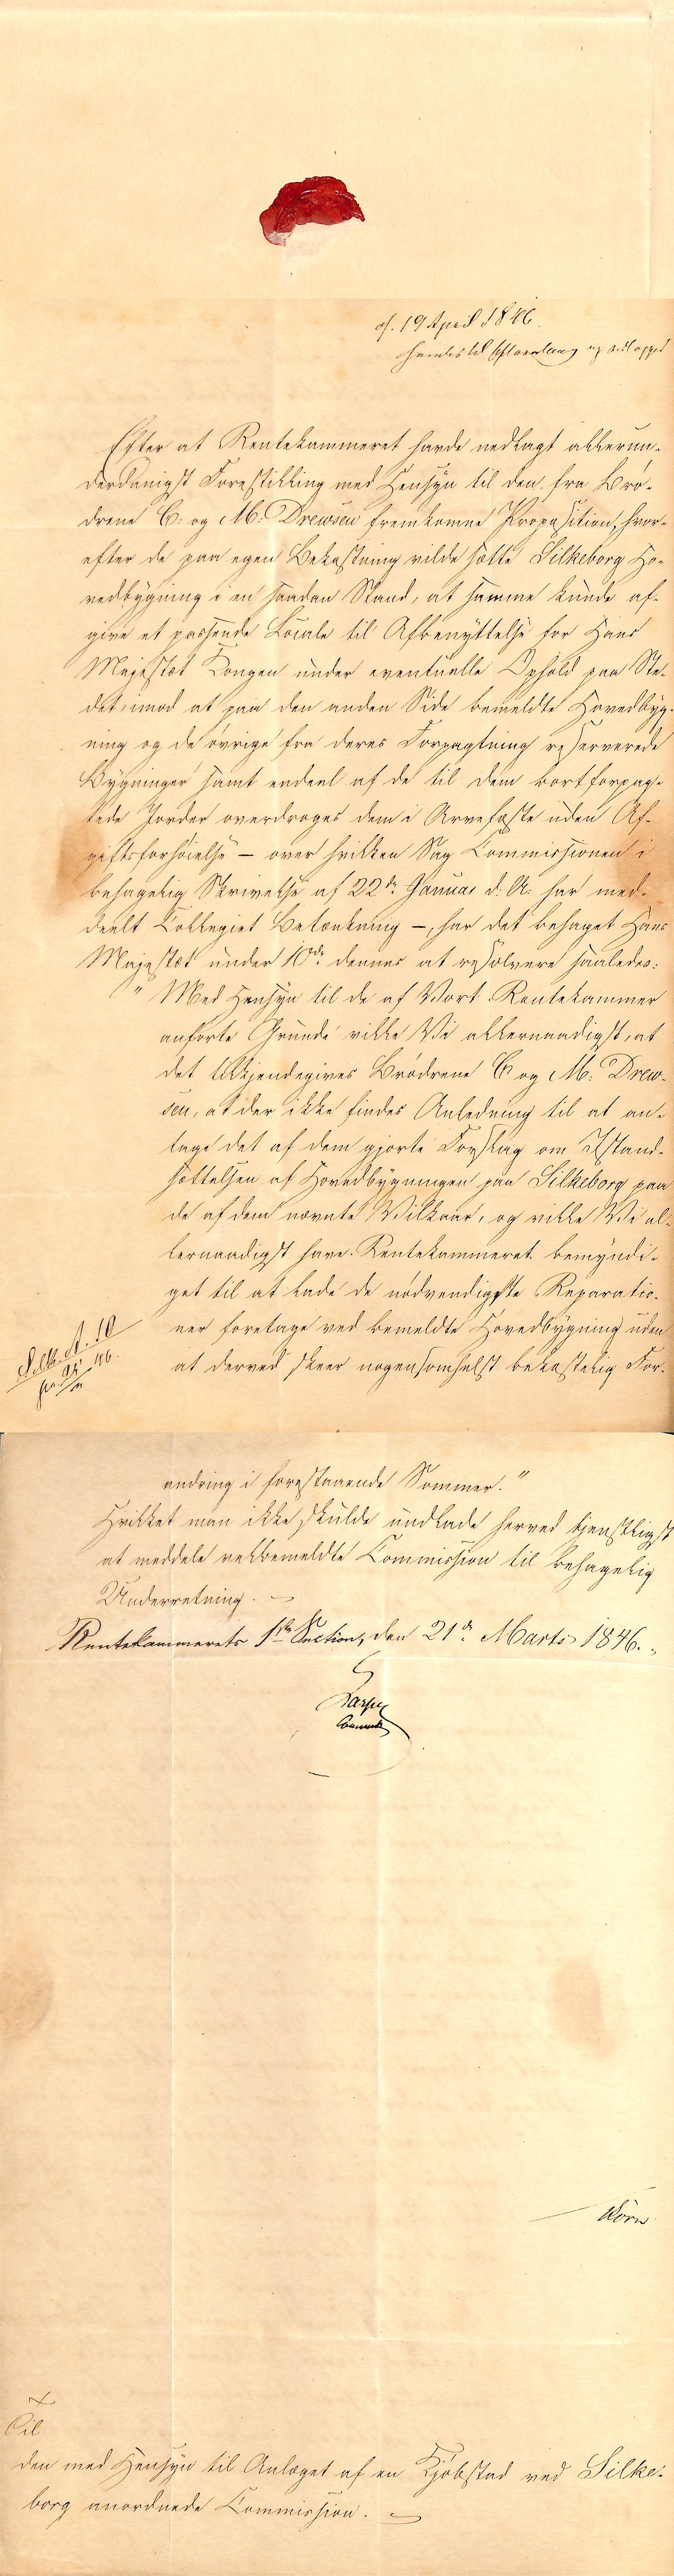 19 April 1846.
Efter at Rentekammeret havde nedlagt allerun-
derdanigst Forestilling med Hensyn til den fra Brø-
drene C: og M: Drewsen fremkomne Proposition, hvor-
efter de paa egen Bekostning vilde sætte Silkeborg Ho-
vedbygning i en saadan Stand, at samme kunde af-
give et passende Locale til Afbenyttelse for Hans
Majestæt Kongen under eventuelle Ophold paa Ste-
det, imod at paa den anden Side bemeldte Hovedbyg-
ning og de øvrige fra deres Forpagtning reserverede
Bygninger samt endeel af de til dem bortforpag-
tede Jorder overdroges dem i Arvefæste uden Af-
giftsforhøielse – over hvilken Sag Commissionen i
behagelig Skrivelse af 22de Januar d. A: har med-
deelt Collegiet Betænkning –, har det behaget Hans
Majestæt under 10de dennes at resolvere saaledes:
" Med Hensyn til de af Vort Rentekammer
anførte Grunde ville Vi allernaadigst, at
det tilkjendegives Brødrene C og M: Drew-
sen, at der ikke findes Anledning til at an-
tage det af dem gjorte Forslag om Istand-
sættelsen af Hovedbygningen paa Silkeborg paa
de af dem nævnte Vilkaar, og ville Vi al-
lernaadigst have Rentekammeret bemyndi-
get til at lade de nødvendigste Reparatio-
ner foretage ved bemeldte Hovedbygning uden
at derved skeer nogensomhelst bekostelig For-
Silkb. A. 10
46.
andring i forestaaende Sommer."
Hvilket man ikke skulde undlade herved tjenstligst
at meddele velbemeldte Commission til behagelig
Underretning. –
Rentekammerets 1ste Section, den 21de Marts 1846.
Til
den med Hensyn til Anlæget af en Kjøbstad ved Silke-
borg anordnede Commission. –